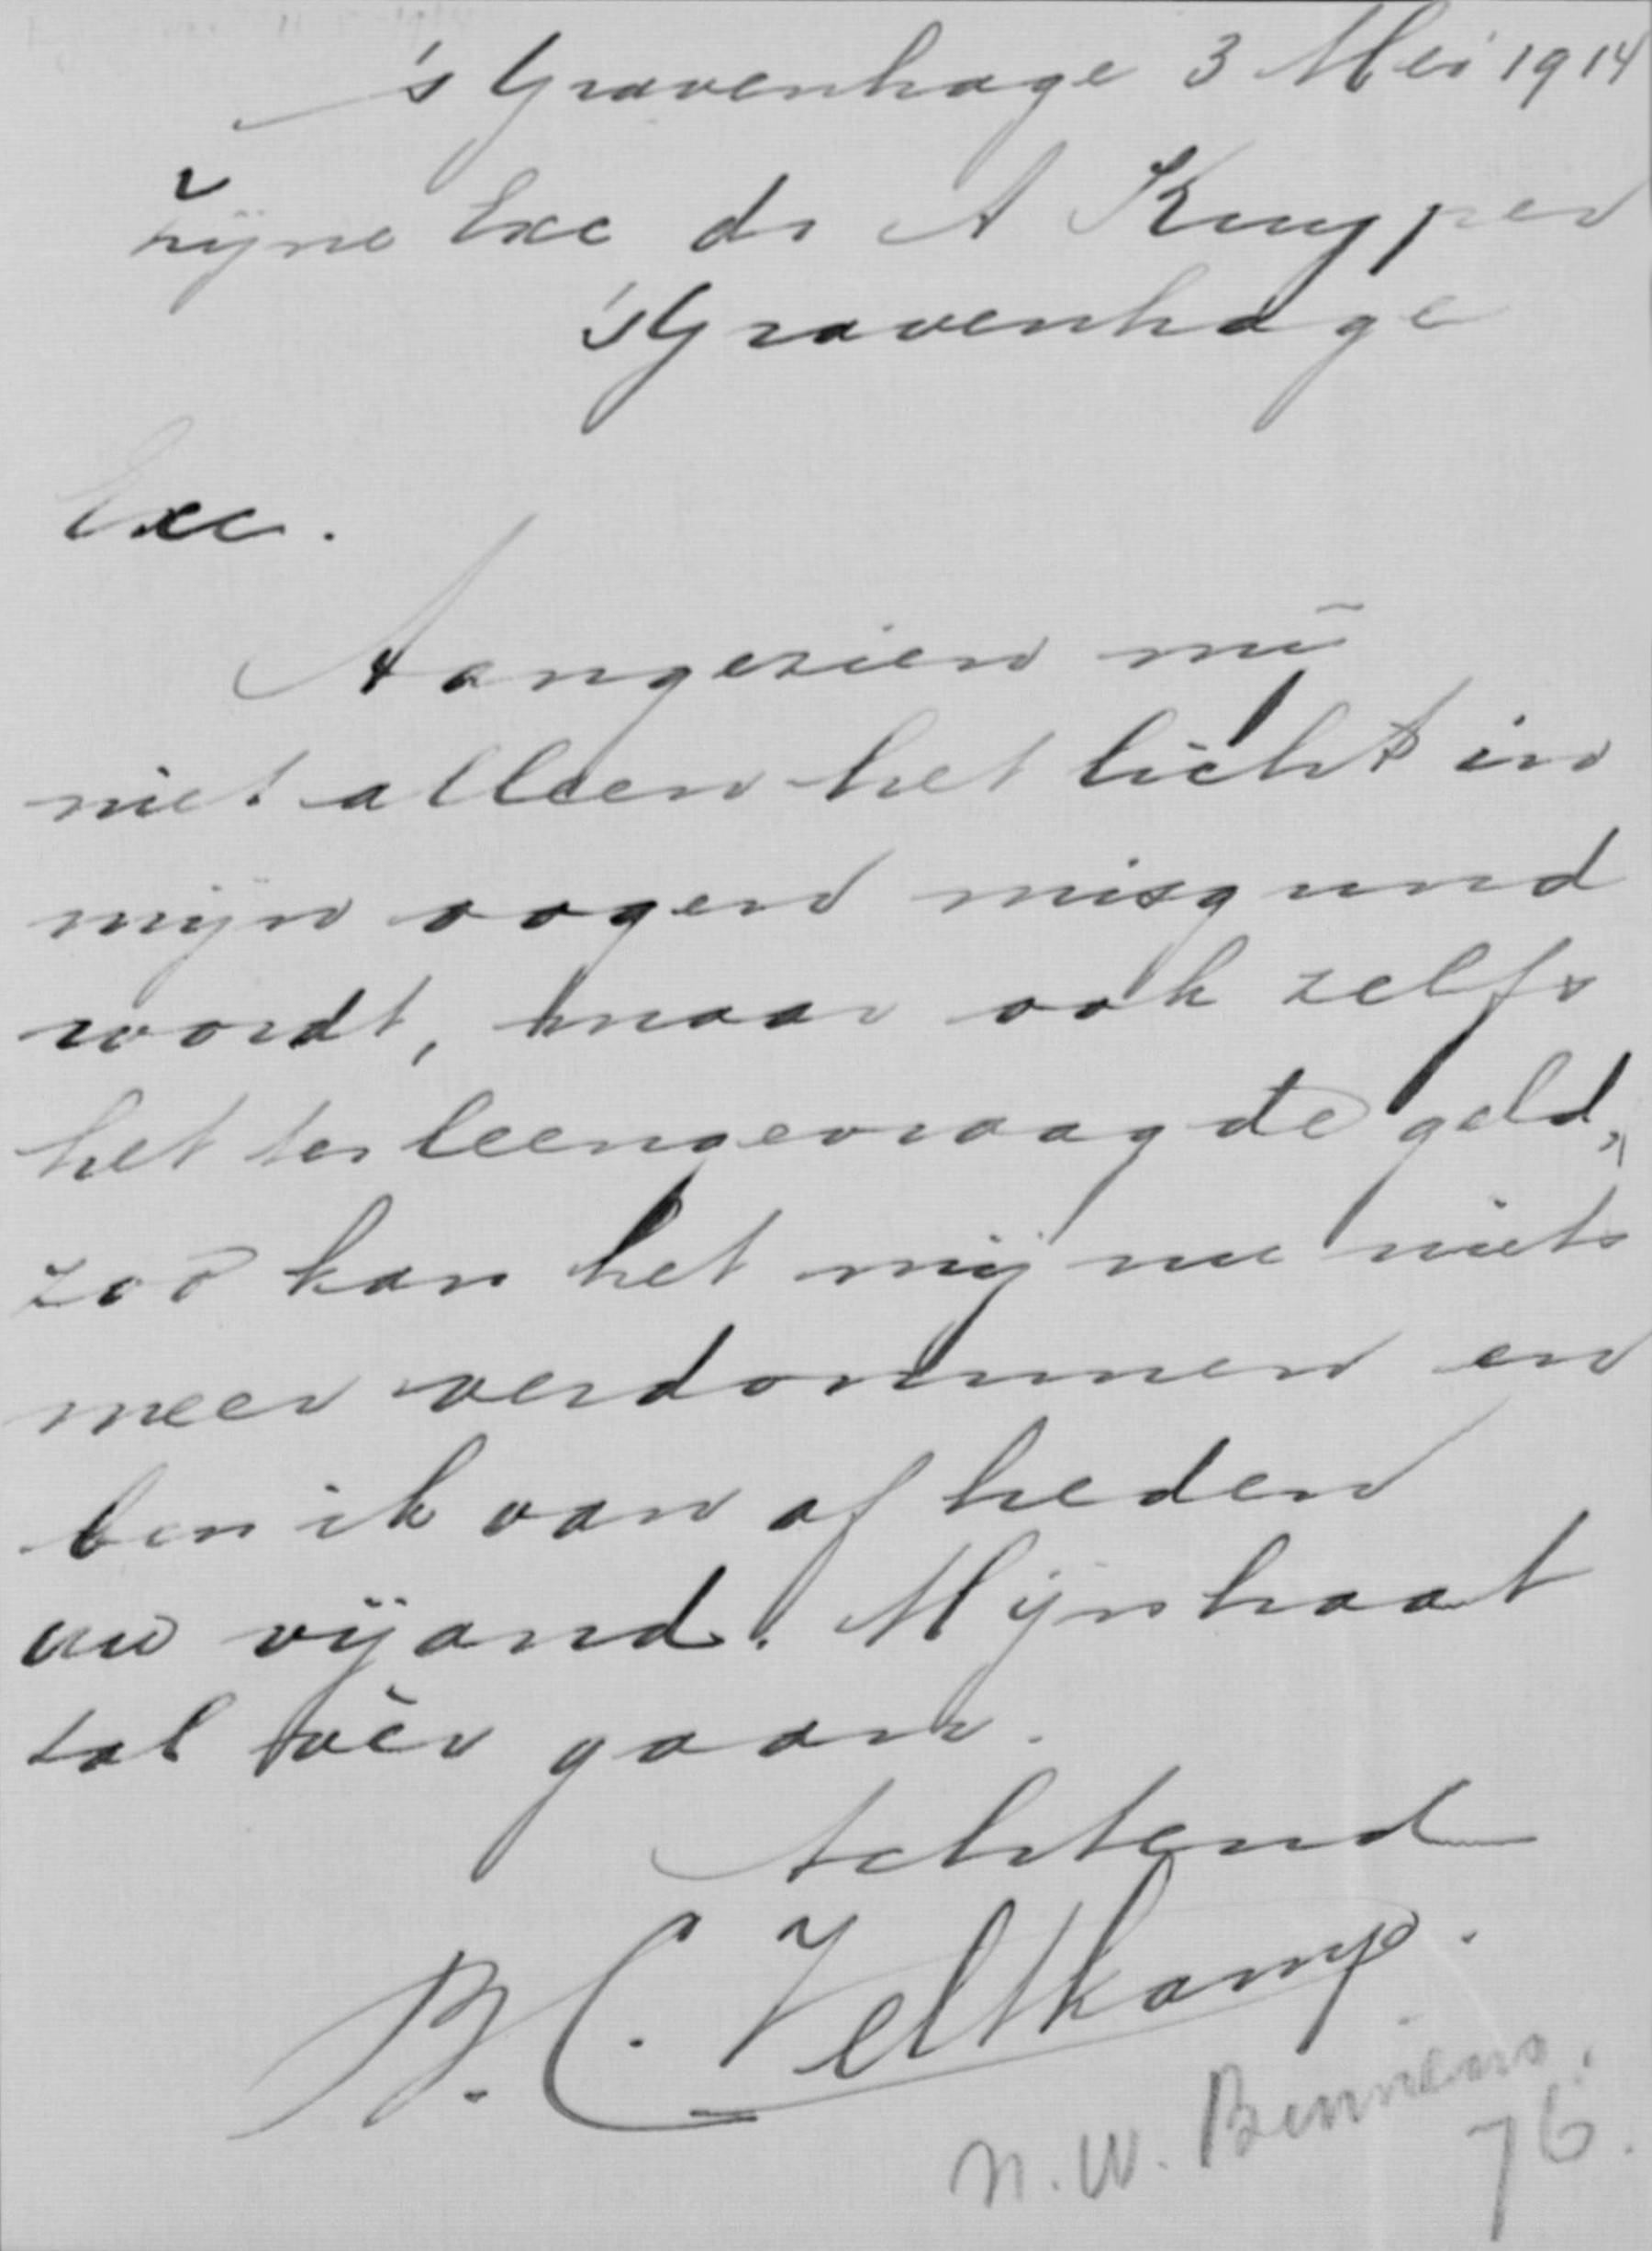 's Gravenhage 3 Mei 1914
Zijne Exc dr A Kuyper
's Gravenhage
Exc.
Aangezien mij
niet alleen het licht in
mijn oogen misgund
wordt, maar ook zelfs
het ter leengevraagde geld,
zoo kan het mij nu niets
meer verdommen en
ben ik van af heden
uw vijand. Mijn haat
zal vèr gaan.
Achtend
B. C. Veltkamp.
N. W. Binnen
76.